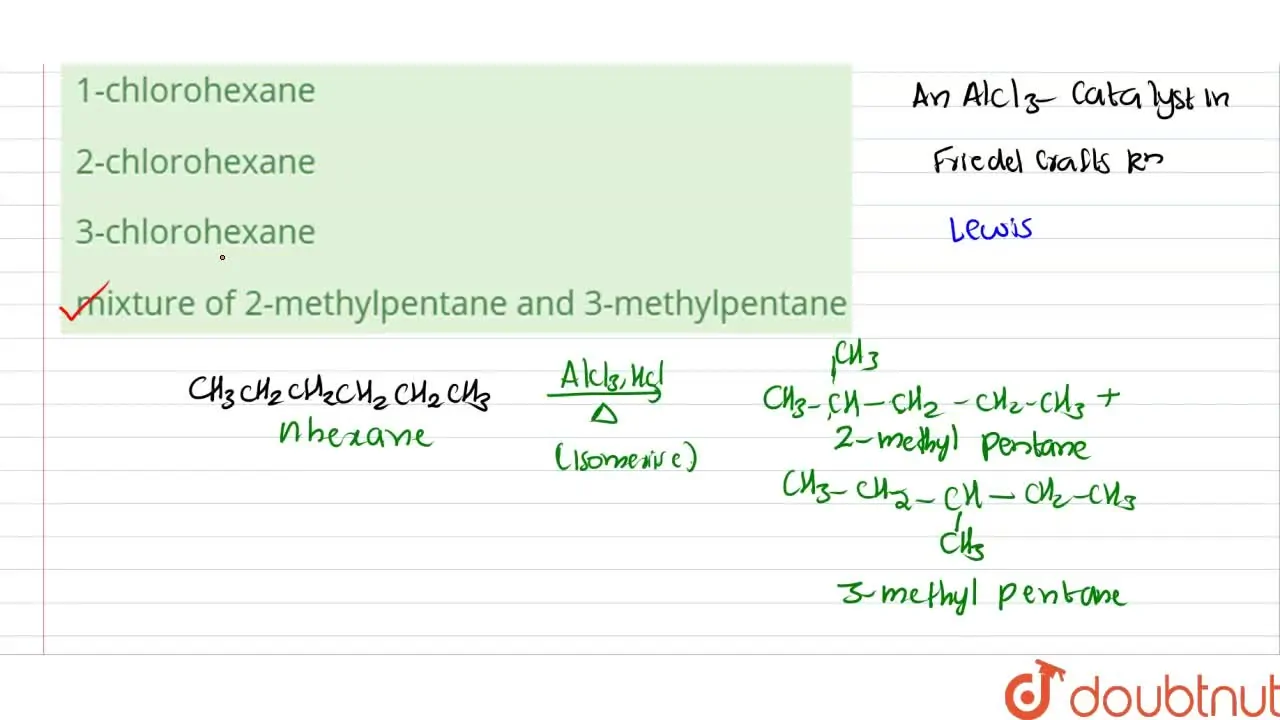 1-chlorohexane
2-chlorohexane
3-chlorohexane
mixture of 2-methylpentane and 3-methylpentane
An AlCl3- Catalyst in
Friedel Crafts rn
Lewis
CH3CH2CH2CH2CH2CH3
n hexane
AlCl3, HCl
Δ
(Isomerise)
CH3
CH3-CH-CH2-CH2-CH3 +
2-methyl pentane
CH3-CH2-CH-CH2-CH3
CH3
3-methyl pentane
doubtnut